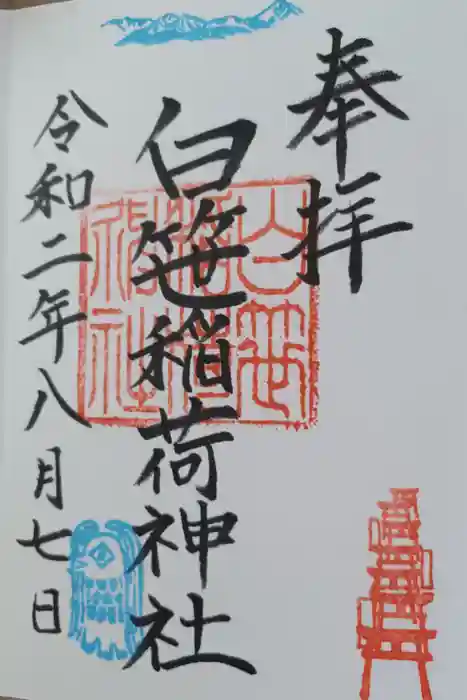 奉拝
白笹稲荷神社
令和二年八月七日
白笹
稲荷
神社